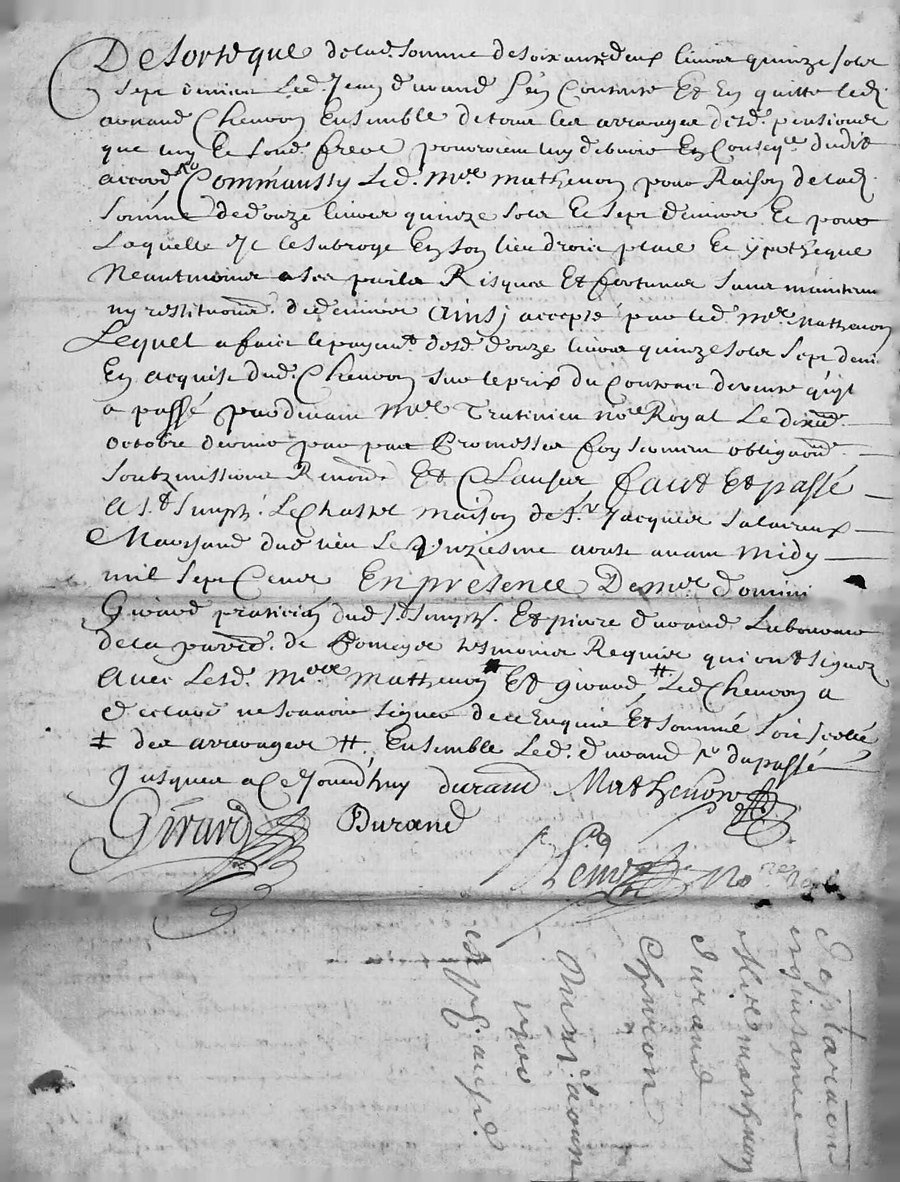 De sorte que de lad. somme de soixante deux livres quinze sols
sept deniers Led. Jean durand s'en Contente Et En quitte led.
Chevron Ensemble de tous les arrerages desd. pensions
que luy Et sond. frere pourroient luy debvoir En Conseq.e dudit
accord Comm'aussy Led. M.re mathevon pour Raison de lad.
somme de douze livres quinze sols Et sept deniers Et pour
Laquelle Il le subroge En son lieu droit place Et ypotheque
Neantmoins a ses perils Risques Et fortunes sans maintenue
ny restitution de deniers Ainsj accepté par led. M.re Mathevon
Lequel a faict le payem.t desd. douze livres quinze sols sept deni
En acquit dud. Chevron sur le prix du Contract de vente qu'il
a passé pardevant M.re no.re Royal Le
octobre dernier par par Promesses foy serment obliga.on
soubzmissions Renon. Et Clauses faict Et passé
A s.t simph. Le Chastel maison de s.r Jacques
Marchand dud. lieu Le unziesme aoust avant midy
mil sept Cents En presence De m.re domini
Girard praticien dud. s.t simph. Et pierre durand Laboureur
de la parr. de Pomeyes tesmoins Requis qui ont signez
avec Lesd. M.re Mathevon Et girard, # Led. Chevron a
declaré ne scavoir signer de ce Enquis Et sommé soit scellé
‡ des arrerages #. Ensemble Led. durand p.r du passé
Jusques a Ce Jourd'huy durand Mathevon
Girard Durand
no.re Royal
Declaration
Mathevon
durand
Chevron
Du xi. aoust
1700